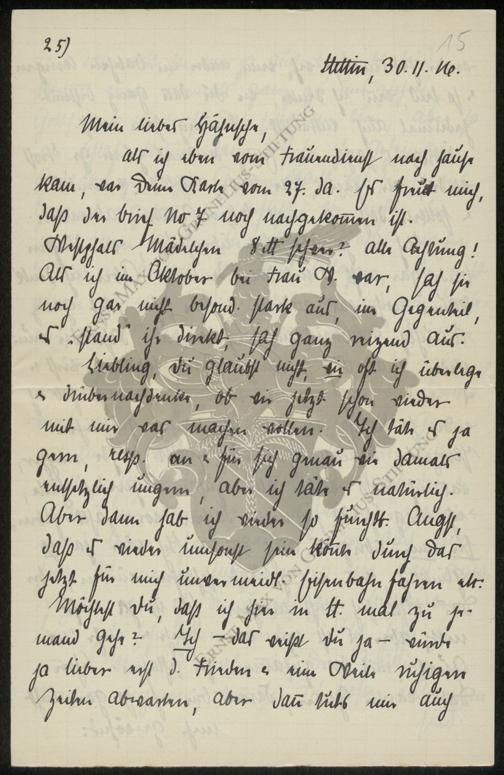 25)
15
Stettin, 30.11.16.
Mein lieber Hähnsche,
als ich eben vom Frauendienst nach Hause
kam, war Deine Karte vom 27. da. Es freut mich,
daß der Brief No 7 noch nachgekommen ist.
Westphals Mädelchen 8 tt schwer? alle Achtung!
Als ich im Oktober bei Frau W. war, sah sie
noch gar nicht besond. stark aus, im Gegenteil,
es „stand" ihr direkt, sah ganz reizend aus.
Liebling, Du glaubst nicht, wie oft ich überlege
u. drübernachdenke, ob wir jetzt schon wieder
mit mir was machen wollen. Ich täte es ja
gern, resp. an u. für sich genau wie damals
entsetzlich ungern, aber ich täte es natürlich.
Aber dann hab ich wieder so furchtb. Angst,
daß es wieder umsonst sein könnte durch das
jetzt für mich unvermeidl. Eisenbahnfahren etc.
Möchtest Du, daß ich hier in St. mal zu je-
mand gehe? Ich – das weißt Du ja – würde
ja lieber erst d. Frieden u. eine Weile ruhigen
Zeiten abwarten, aber dann tuts mir auch
ERNST MAX VON GRUNELIUS-STIFTUNG
ERNST MAX VON GRUNELIUS-STIFTUNG